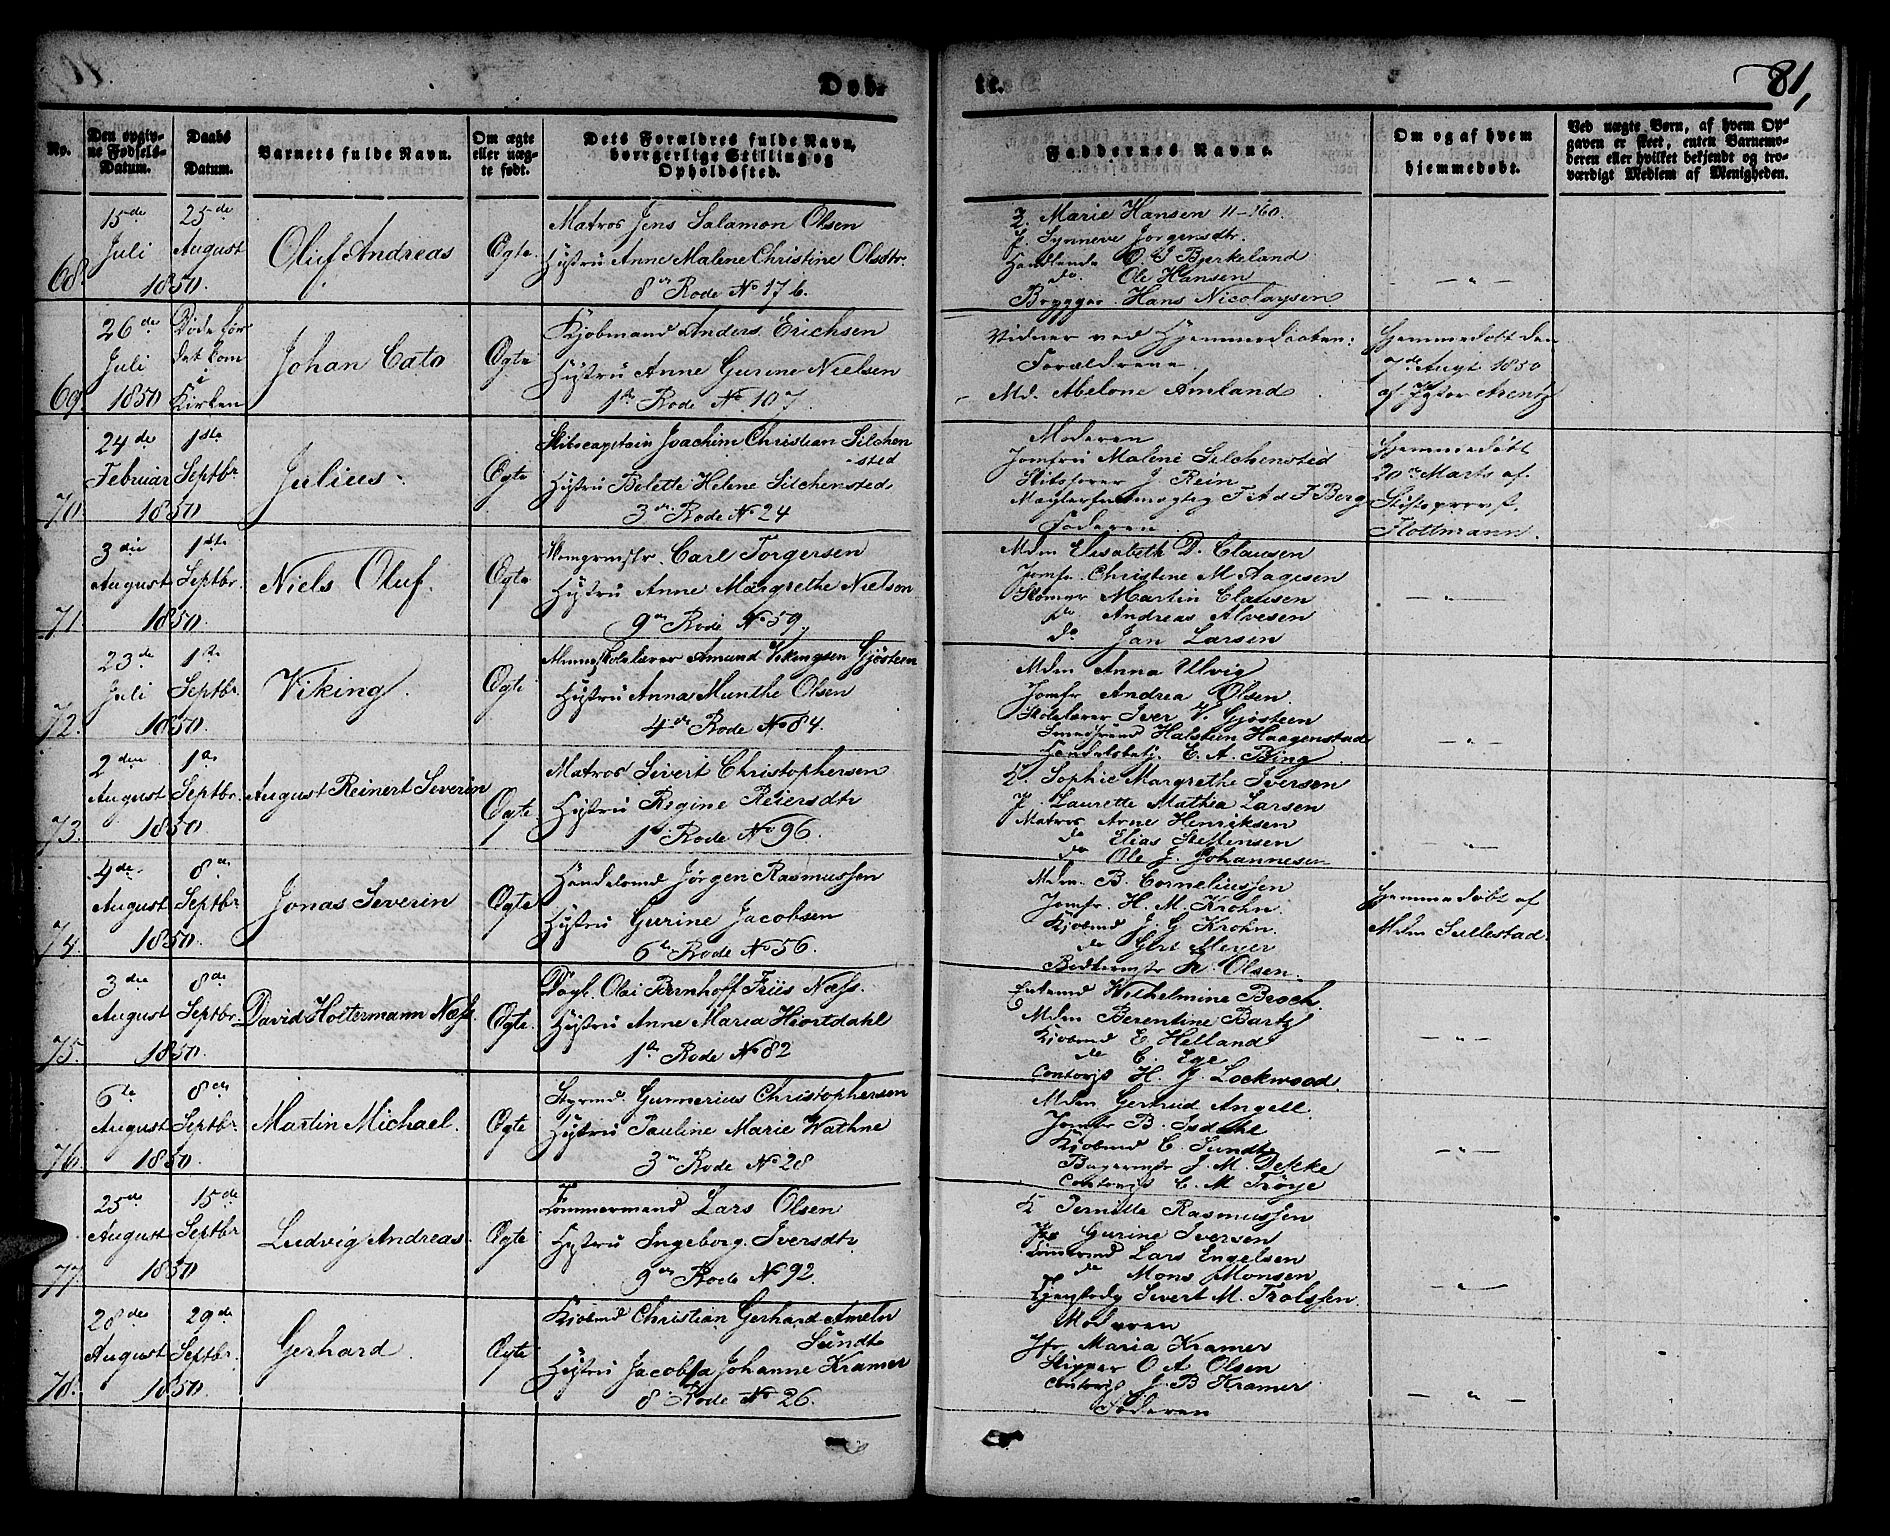 Døb-
te.
81,
No.
Den opgiv-
ne Fødsels-
Datum.
Daabs
Datum.
Barnets fulde Navn.
Om ægte
eller uæg-
te født.
Dets Forældres fulde Navn,
borgerlige Stilling og
Opholdssted.
Faddernes Navne.
Om og af hvem
hjemmedøbt.
Ved uægte Børn, af hvem Op-
gaven er skeet, enten Barnemo-
deren eller hvilket bekjendt og tro-
værdigt Medlem af Menigheden.
68.
15de
Juli
1850.
25de
August
Oluf Andreas
Ægte
Matros Jens Salamon Olsen
Hustru Anne Malene Christine Olsdtr.
8de Rode No 176.
K. Marie Hansen 11-160.
P. Synneve Jørgensdtr.
Handlende O. J. Bjerkeland
do Ole Hansen
Brygger Hans Nicolaysen
— " —
69.
26de
Juli
1850
Døde før
det kom
i
Kirken
Johan Cato
Ægte
Kjøbmand Anders Erichsen
Hustru Anne Gurine Nielsen
1ste Rode No 107.
Vidner ved Hjemmedaaben:
Forældrene
Md. Abelone Amland
Hjemmedøbt den
7de Augt 1850
af Arentz
70.
24de
Februar
1850
1ste
Septbr.
Julius.
Ægte
Skibscaptain Joachim Christian Silchen
-sted
Hustru Bolette Helene Silchensted
3de Rode No 24
Moderen
Jomfru Malene Silchensted
Skibsfører J. Rein
Mæglerfuldmægtig F. A. d F. Berg
Faderen
Hjemmedøbt
20de Marts af
Stiftsprovst
Flottmann.
71.
3die
August
1850.
1ste
Septbr.
Niels Oluf.
Ægte
Carl Torgersen
Hustru Anne Margrethe Nielson
9de Rode No 59.
Mdm Elisabeth D. Clausen
Jomfr. Christine M Aagesen
Martin Clausen
do Andreas Alvesen
do Jan Larsen
— " —
72.
23de
Juli
1850.
1ste
Septbr.
Viking.
Ægte
Almueskolelærer Amund Vikingsen Gjøsteen
Hustru Anna Munthe Olsen
4de Rode No 84.
Mdm Anna Ulvig
Jomfr Andrea Olsen
Skolelærer Iver V. Gjøsteen
Halstein Haagenstad
Handelsbetj. E. A. Bing
— " —
73.
2den
August
1850
1ste
Septbr.
August Reinert Severin
Ægte
Matros Sivert Christophersen
Hustru Regine Reiersdtr
1ste Rode No 96.
K. Sophie Margrethe Iversen
P. Laurette Mathia Larsen
Matros Arne Henriksen
do Elias Steffensen
do Ole J. Johannesen
— " —
74.
4de
August
1850.
8de
Septbr
Jonas Severin
Ægte
Handelsmd Jørgen Rasmussen
Hustru Gurine Jacobsen
6te Rode No 56.
Mdm. B. Corneliussen
Jomfr. H. M. Krohn.
Kjøbmd J. G Krohn.
do Gert Meyer
R. Olsen.
Hjemmedøbt af
Mdm Sellestad.
75.
3die
August
1850.
8de
Septbr.
David Holtermann Næss.
Ægte.
Olai Bernhoff Friis Næss.
Hustru Anne Maria Hiortdahl
1ste Rode No 82
Wilhelmine Broch.
Mdm Berentine Bartz
Kjøbmd E. Helland
do C. Ege
Contorist H. J. Lockwood.
— " —
76.
6te
August
1850.
8de
Septbr.
Martin Michael.
Ægte
Styrmd. Gunnerius Christophersen
Hustru Pauline Marie Wathne
3de Rode No 28
Mdm Gertrud Angell.
Jomfr B. Isdahl
Kjøbmd C. Sundt
Bagermstr J. M. Dekke
Contorist C. M Trøye
— " —
77.
25de
August
1850
15de
Septbr
Ludvig Andreas.
Ægte
Tømmermand Lars Olsen
Hustru Ingeborg Iversdtr
9de Rode No 92.
K Pernille Rasmussen
Gurine Iversen
Tømmermd Lars Engelsen
do Mons Monsen
Sivert M. Trolssen.
— " —
78.
28de
August
1850.
29de
Septbr.
Gerhard
Ægte
Kjøbmd Christian Gerhard Ameln
Sundt
Hustru Jacobsa Johanne Kramer
8 Rode No 26.
Moderen
Jfr Maria Kramer
Skipper O A Olsen
Contorist J. B Kramer
Faderen
— " —